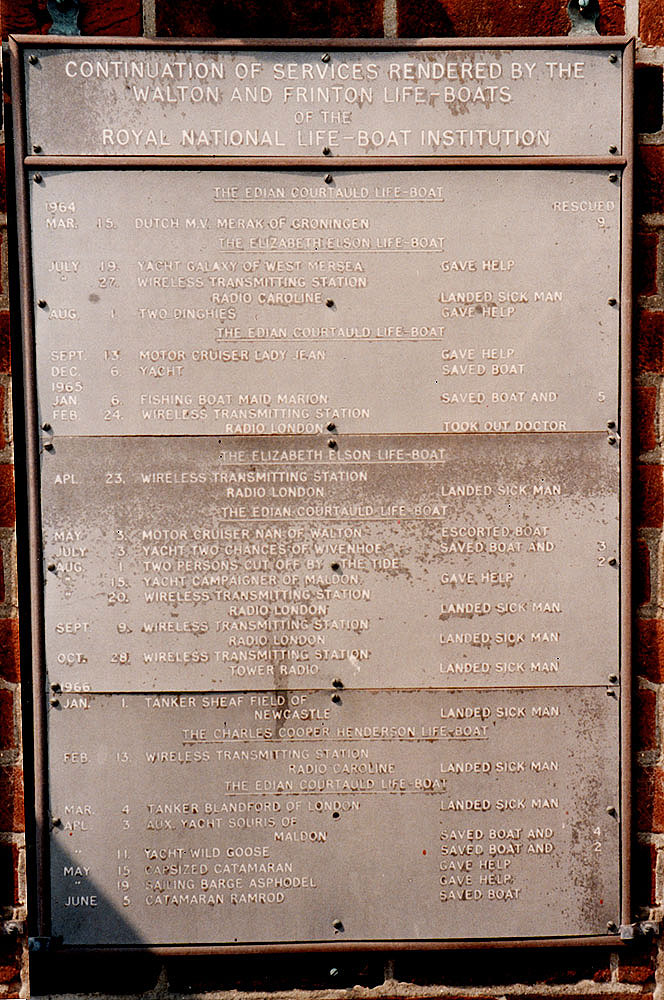 CONTINUATION OF SERVICES RENDERED BY THE
WALTON AND FRINTON LIFE-BOATS
OF THE
ROYAL NATIONAL LIFE-BOAT INSTITUTION
THE EDIAN COURTAULD LIFE-BOAT
1964 RESCUED
MAR. 15. DUTCH M.V. MERAK OF GRONINGEN 9
THE ELIZABETH ELSON LIFE-BOAT
JULY 19. YACHT GALAXY OF WEST MERSEA GAVE HELP
" 27. WIRELESS TRANSMITTING STATION
RADIO CAROLINE LANDED SICK MAN
AUG. 1. TWO DINGHIES GAVE HELP
THE EDIAN COURTAULD LIFE-BOAT
SEPT. 13. MOTOR CRUISER LADY JEAN GAVE HELP
DEC. 6. YACHT SAVED BOAT
1965
JAN. 6. FISHING BOAT MAID MARION SAVED BOAT AND 5
FEB. 24. WIRELESS TRANSMITTING STATION
RADIO LONDON TOOK OUT DOCTOR
THE ELIZABETH ELSON LIFE-BOAT
APL. 23. WIRELESS TRANSMITTING STATION
RADIO LONDON LANDED SICK MAN
THE EDIAN COURTAULD LIFE-BOAT
MAY 3. MOTOR CRUISER NAN OF WALTON ESCORTED BOAT
JULY 3. YACHT TWO CHANCES OF WIVENHOE SAVED BOAT AND 3
AUG. 1. TWO PERSONS CUT OFF BY THE TIDE 2
" 15. YACHT CAMPAIGNER OF MALDON GAVE HELP
" 20. WIRELESS TRANSMITTING STATION
RADIO LONDON LANDED SICK MAN
SEPT. 9. WIRELESS TRANSMITTING STATION
RADIO LONDON LANDED SICK MAN
OCT. 28. WIRELESS TRANSMITTING STATION
TOWER RADIO LANDED SICK MAN
1966
JAN. 1. TANKER SHEAF FIELD OF
NEWCASTLE LANDED SICK MAN
THE CHARLES COOPER HENDERSON LIFE-BOAT
FEB. 13. WIRELESS TRANSMITTING STATION
RADIO CAROLINE LANDED SICK MAN
THE EDIAN COURTAULD LIFE-BOAT
MAR. 4 TANKER BLANDFORD OF LONDON LANDED SICK MAN
APL. 3 AUX. YACHT SOURIS OF
MALDON SAVED BOAT AND 4
" 11. YACHT WILD GOOSE SAVED BOAT AND 2
MAY 15 CAPSIZED CATAMARAN GAVE HELP
" 19 SAILING BARGE ASPHODEL GAVE HELP
JUNE 5 CATAMARAN RAMROD SAVED BOAT